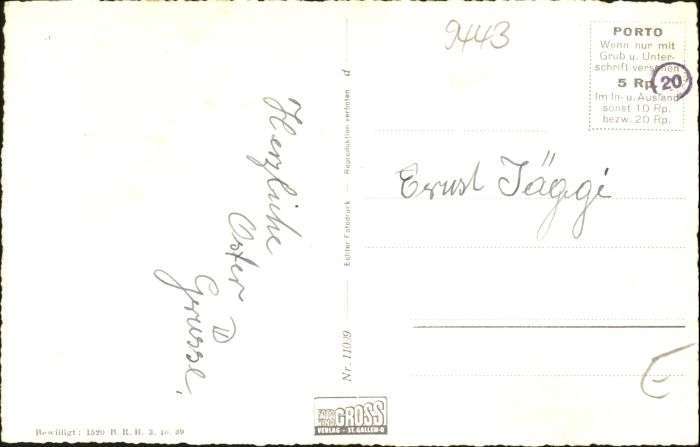 9443
PORTO
Wenn nur mit
Grub u. Unter-
schrift versehen
5 Rp.
20
Im In- u. Ausland
sonst 10 Rp.
bezw. 20 Rp.
Herzliche
Oster
Grüsse,
Ernst Jäggi
Nr. 11099 Echter Fotodruck — Reproduktion verboten d
GROSS
VERLAG - ST. GALLEN-O
Bewilligt: 1520 B. R. B. 3. 10. 39